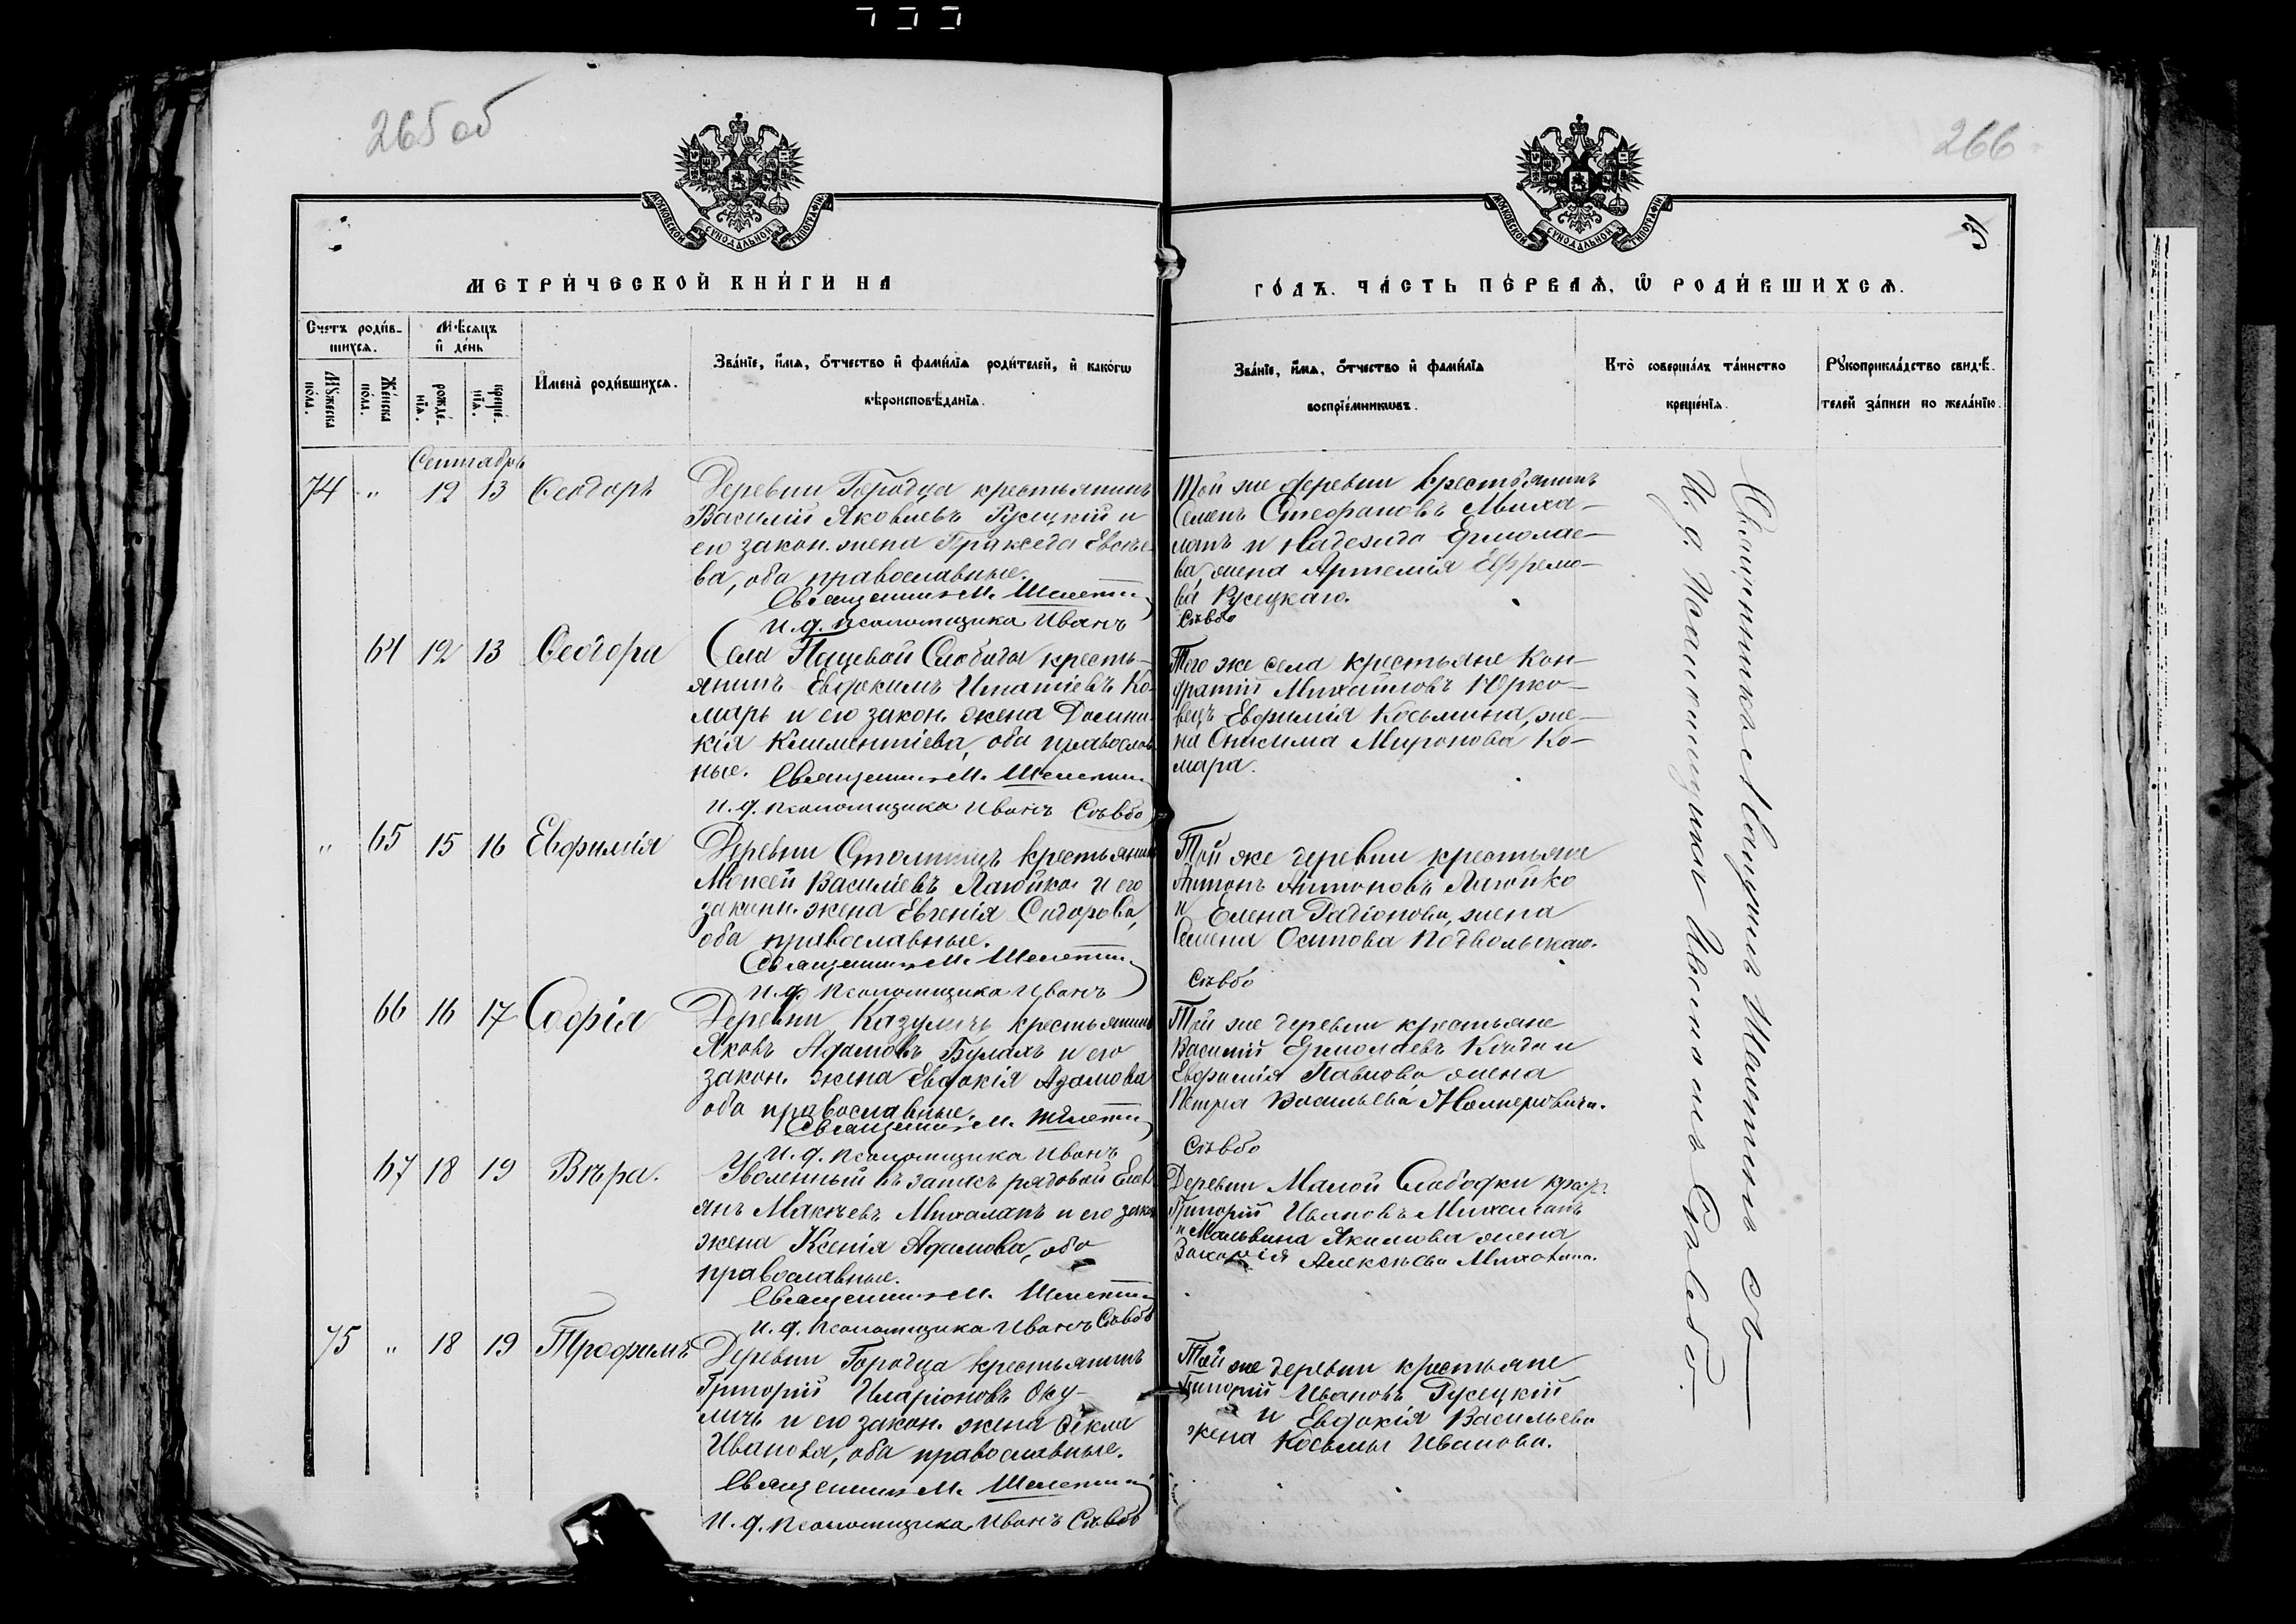 265 об
266
МОСКОВСКОЙ СѴНОДАЛЬНОЙ ТИПОГРАФІИ
МОСКОВСКОЙ СѴНОДАЛЬНОЙ ТИПОГРАФІИ
31
МЕТРИ́ЧЕСКОЙ КНИ́ГИ НА
ГО́ДЪ. ЧА́СТЬ ПЕ́РВАѦ, Ѡ҆ РОДИ́ВШИХСѦ.
Счетъ роди́в-
шихсѧ.
Мꙋ́жеска по́ла.
Же́нска по́ла.
Мѣ́сѧцъ
и҆ де́нь
рожде́-нїѧ.
креще́-нїѧ.
И҆мена̀ роди́вшихсѧ.
Зва́нїе, и҆́мѧ, ѻ҆́тчество и҆ фами́лїѧ роди́телей, и҆ како́гѡ
вѣроисповѣ́данїѧ.
Зва́нїе, и҆́мѧ, ѻ҆́тчество и҆ фами́лїѧ
воспрїе́мникѡвъ.
Кто̀ соверша́лъ та́инство
креще́нїѧ.
Рꙋкоприкла́дство свидѣ́-
телей за́писи по жела́нїю.
Сентябрь
74 " 12 13 Ѳеодоръ
Деревни Городца крестьянинъ
Василій Яковлевъ Русецкій и
его закон. жена Пракседа Евсѣе-
ва, оба православные.
Священникъ М.
И. д. псаломщика Иванъ
Той же деревни крестьянинъ
Семенъ Стефановъ Миха-
ланъ и Надежда Ермолае-
ва, жена Артемія Ефремо-
ва Русецкаго.
64 12 13 Ѳеодора
Села Пацевой Слободы кресть-
янинъ Евдокимъ Игнатіевъ Ко-
маръ и его закон. жена Домни-
кія Климентіева, оба православ-
ные. Священникъ М.
И. д. псаломщика Иванъ
Того же села крестьяне Кон-
дратій Михайловъ Юрко-
вецъ Евфимія Косьмина, же-
на Онисима Миронова Ко-
мара.
" 65 15 16 Евфимія
Деревни крестьянинъ
Моисей Василіевъ Лагойко и его
законн. жена Евгенія Сидорова,
оба православные.
Священникъ М.
И. д. псаломщика Иванъ
Той же деревни крестьяне
Антонъ Антоновъ Лагойко
и Елена Радіонова, жена
Семена Осипова Подвольскаго.
66 16 17 Софія
Деревни Казуличъ крестьянинъ
Яковъ Адамовъ Булахъ и его
закон. жена Евдокія Адамова
оба православные.
Священникъ М.
И. д. псаломщика Иванъ
Той же деревни крестьяне
Василій Ермолаевъ и
Евфимія Павлова жена
Петра Васильева
67 18 19 Вѣра.
Уволенный въ запасъ рядовой
Михаланъ и его закон.
жена Ксенія Адамова, оба
православные.
Священникъ М.
И. д. псаломщика Иванъ
Деревни Малой Слободки кр.
Григорій Ивановъ Михаланъ
и Мальвина Якимова жена
Захарія Алексѣева Михалана.
75 " 18 19 Трофимъ
Деревни Городца крестьянинъ
Григорій Иларіоновъ Оку-
личъ и его закон. жена Ѳекла
Иванова, оба православные.
Священникъ М.
И. д. псаломщика Иванъ
Той же деревни крестьяне
Григорій Ивановъ Русецкій
и Евдокія Васильева
жена Косьмы Иванова.
Священникъ
И. д. Псаломщика Иванъ